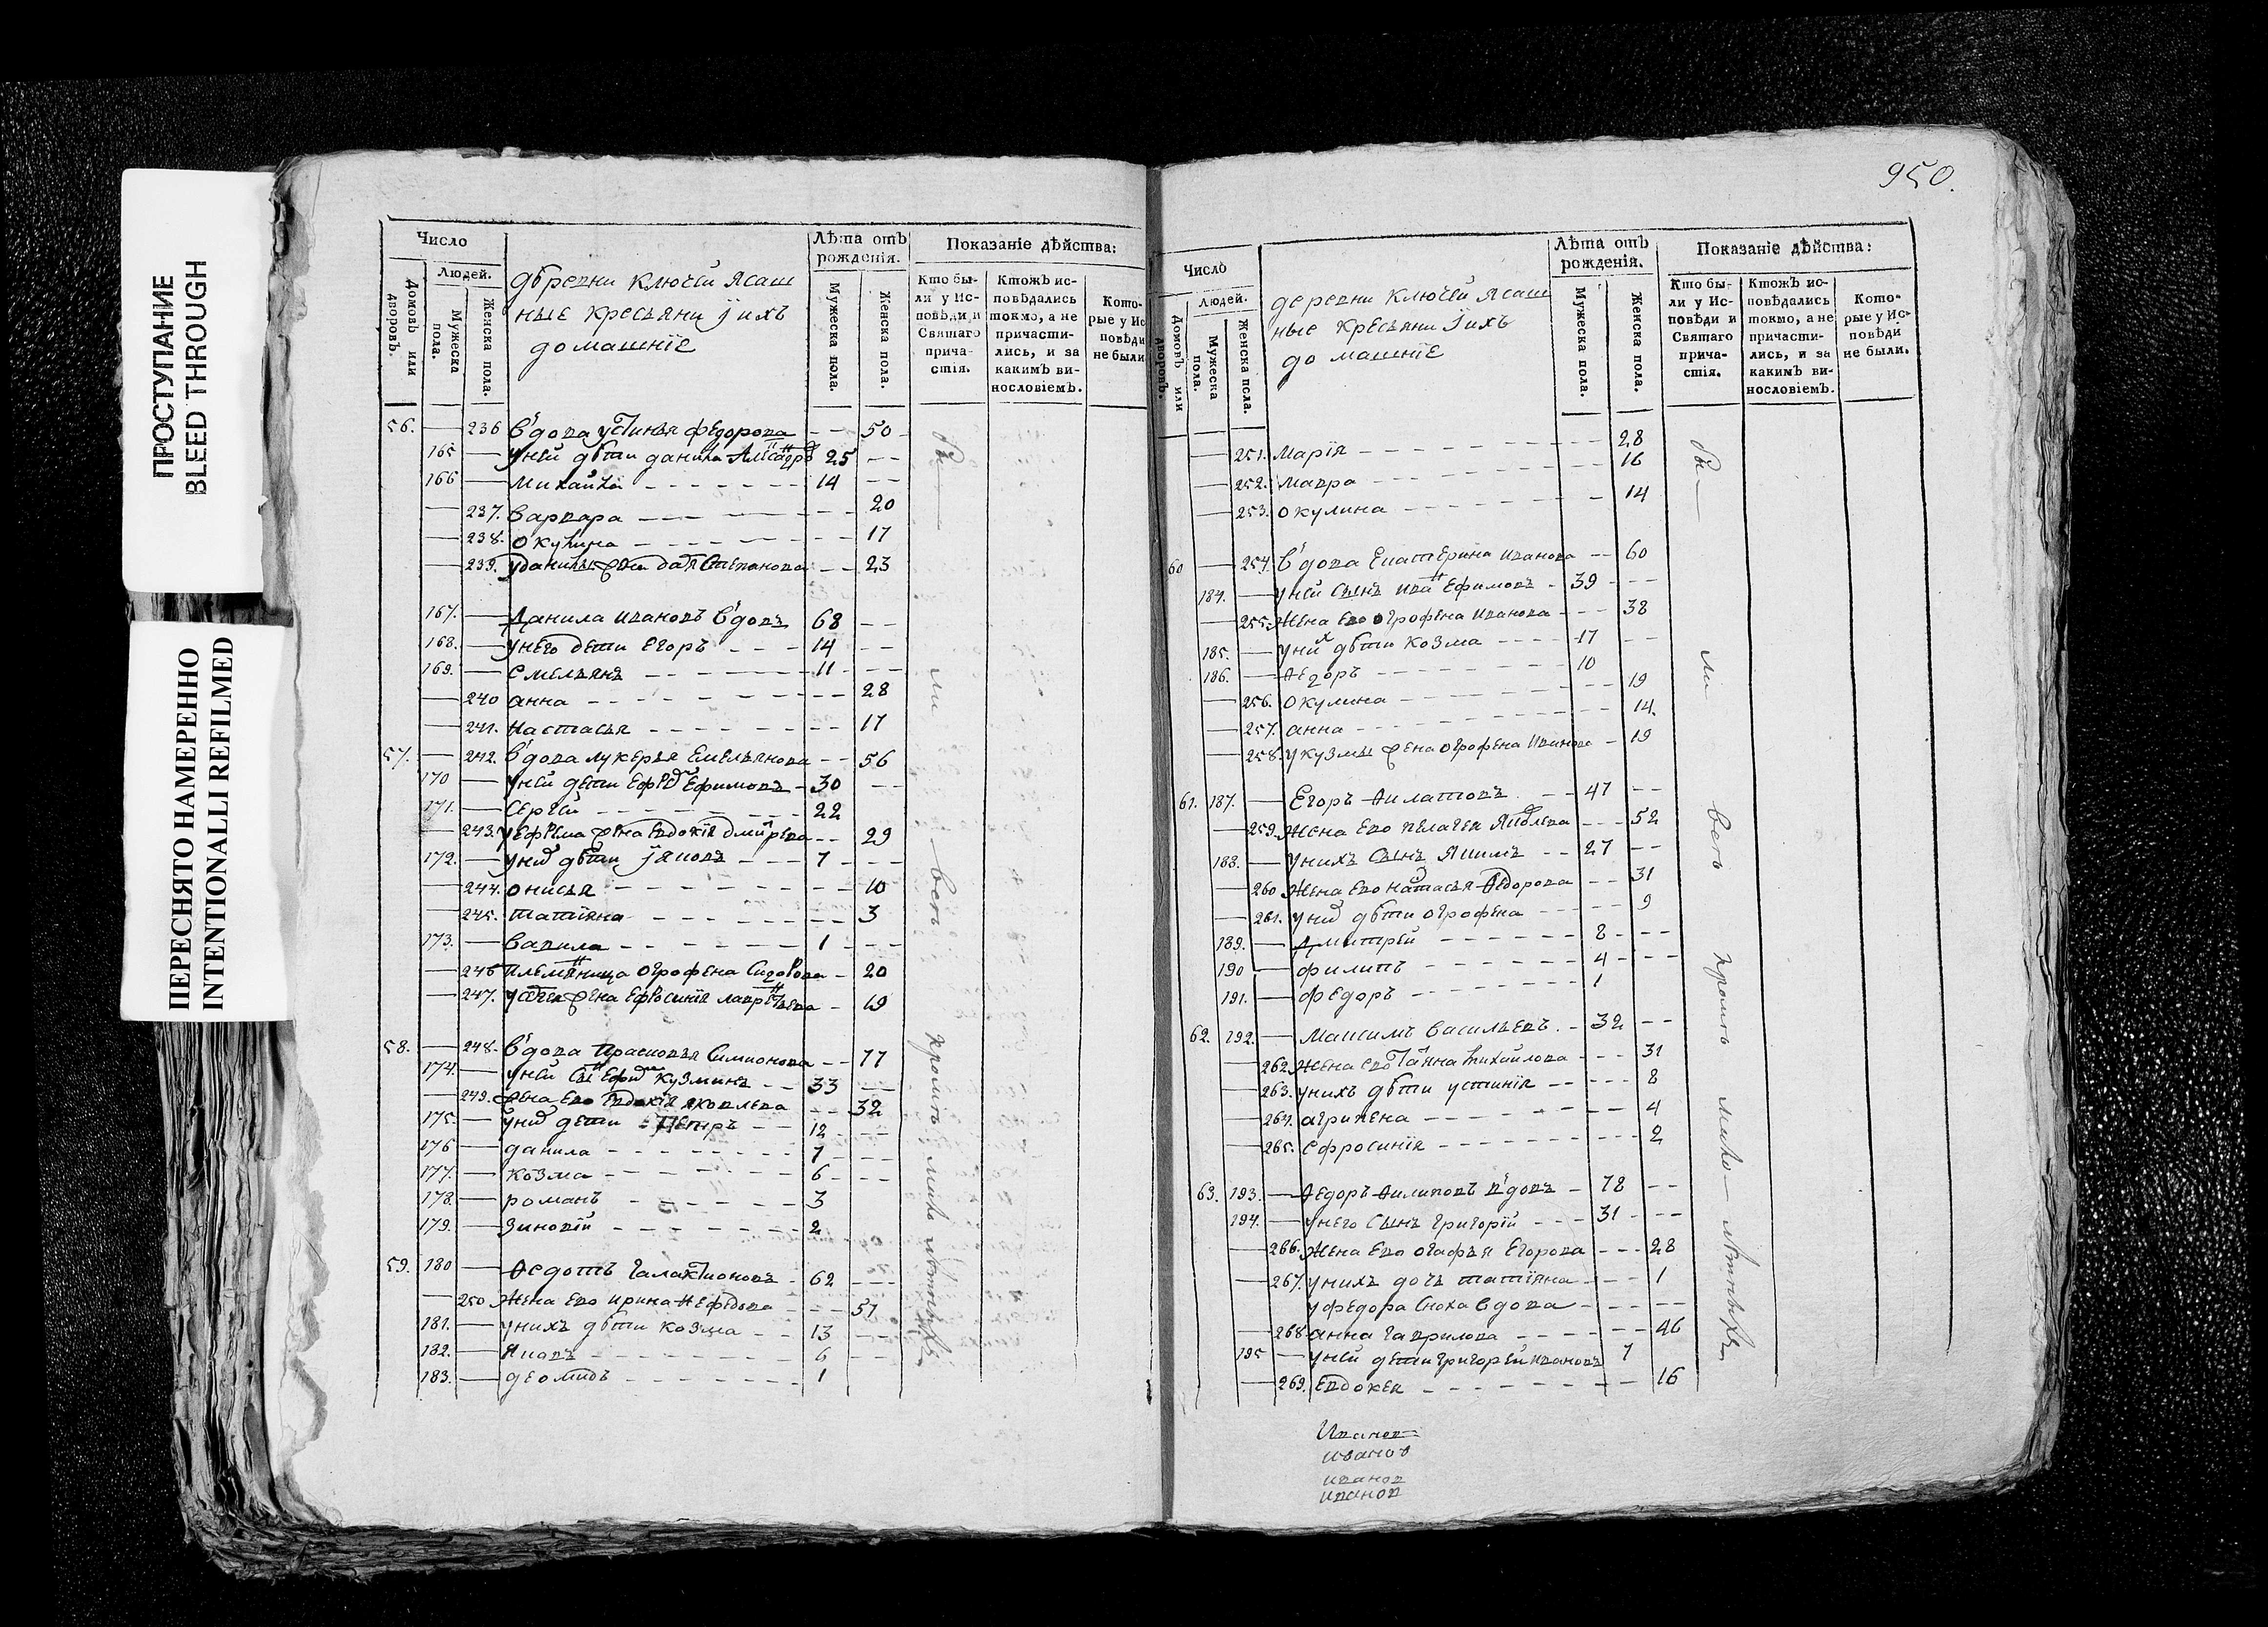 ПРОСТУПАНИЕ
BLEED THROUGH
ПЕРЕСНЯТО НАМЕРЕННО
INTENTIONALLI REFILMED
Число
Домовъ или дворовъ.
Людей.
Мужеска пола.
Женска пола.
дѣревни ключей Ясаш
ные крестьяни ї ихъ
домашнїе
Лѣта отъ рожденія.
Мужеска пола.
Женска пола.
Показаніе дѣйства:
Кто были у Исповѣди и Святаго причастія.
Ктожъ исповѣдались токмо, а не причастились, и за какимъ винословіемъ.
Которые у Исповѣди не были
56. — 236 вдова устинья федорова — 50
165 — уней дѣти данила 25
166 — михайла 14
— 237. варвара 20
— 238. окулина 17
— 239. уданилы жена Степанова 23
167. — Данила ивановъ вдовъ 68
168. — унего дети Егоръ 14
169. — Емельянъ 11
— 240 анна 28
— 241. настасья 17
57. — 242. вдова лукерья Емельянова 56
170 — уней дети Ефремъ Ефимовъ 30
171. — Сергей 22
— 243. уефрема жена евдокїя дмитрева 29
172. — уних дѣти їяковъ 7
— 244. онисья 10
— 245. татїяна 3
173. — вавила 1
— 246 племянница огрофена Сидорова 20
— 247. жена ефросинїя лаврентьева 19
58. — 248. вдова Прасковья Симионова 77
174. — уней сынъ кузминъ 33
— 249. жена ево евдокїя яковлева 32
175. — уних дети Петръ 12
176 — данила 7
177. — козма 6
178. — романъ 3
179. — Зиновїй 2
59. 180 — Ѳедотъ Галактионовъ 62
— 250 Жена ево ирина Нефедова 51
181. — унихъ дѣти козма 13
182. — Яковъ 6
183. — деомидъ 1
бы — ли — всѣ кромѣ
950.
Число
Домовъ или дворовъ.
Людей.
Мужеска пола.
Женска пола.
деревни ключей ясаш
ные крестьяни ї ихъ
до машнїе
Лѣта отъ рожденія.
Мужеска пола.
Женска пола.
Показаніе дѣйства:
Кто были у Исповѣди и Святаго причастія.
Ктожъ исповѣдались токмо, а не причастились, и за какимъ винословіемъ.
Которые у Исповѣди не были.
— 251. марїя 28
— 252. мавра 16
— 253. окулина 14
60 — 254. вдова Екатерина иванова 60
184. — уней сынъ иван Ефимовъ 39
— 255. Жена ево огрофена иванова 38
185. — уних дѣти козма 17
186. — Ѳедоръ 10
— 256. окулина 19
— 257. анна 14
— 258. укузмы жена огрофена иванова 19
61. 187. — Егоръ Ѳилатовъ 47
— 259. Жена ево пелагея Яковлева 52
188. — унихъ сынъ Якимъ 27
— 260 Жена ево настасья Ѳедорова 31
— 261. уних дѣти огрофена 9
189. — Дмитрей 8
190 — филипъ 4
191. — федоръ 1
62. 192. — максимъ васильевъ 32
— 262. жена ево татїянна михайлова 31
— 263. унихъ дѣти устинїя 8
— 264. агрипена 4
— 265. ефросинїя 2
63. 193. — Ѳедоръ Ѳилиповъ вдовъ 78
194. — унего сынъ григорїй 31
— 266. жена ево огафья Егорова 28
— 267. унихъ дочь татїяна 1
уфедора сноха вдова
— 268 анна гаврилова 46
195 — уней дети григорей ивановъ 7
— 269. евдокея 16
бы — ли всѣ кромѣ
Иванов
иванов
иванов
иванов